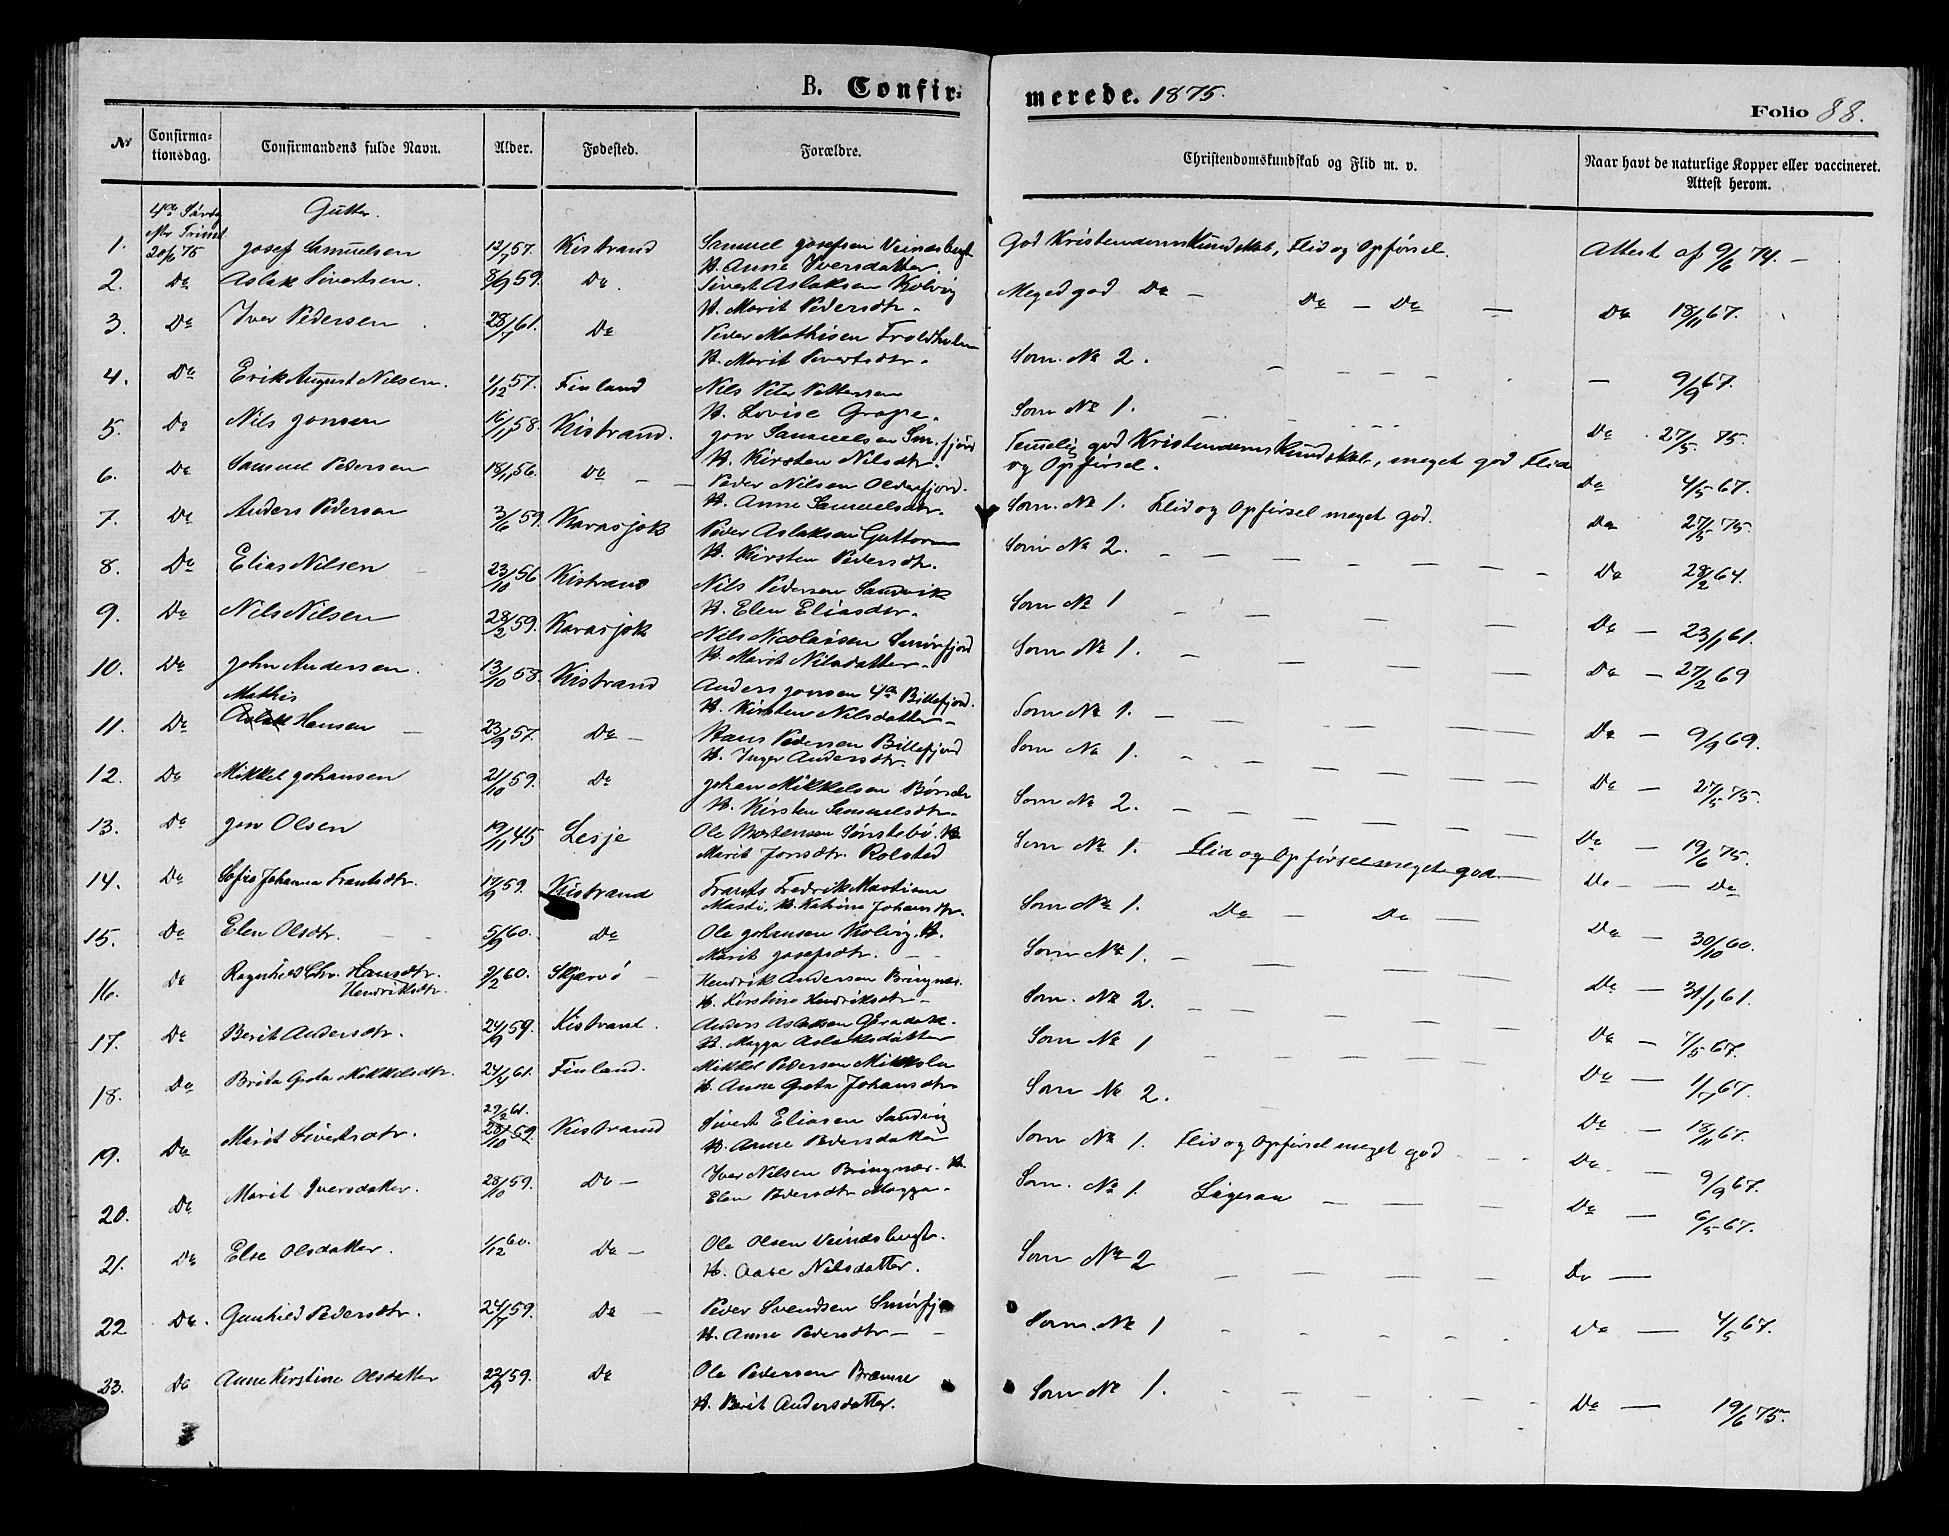 B. Confir-
merede. 1875.
Folio 88.
Nr
Confirma-
tionsdag.
Confirmandens fulde Navn.
Alder.
Fødested.
Forældre.
Christendomskundskab og Flid m. v.
Naar havt de naturlige Kopper eller vaccineret.
Attest herom.
Gutter.
4de Sønd
efter Trinit.
1. 20/6 75 Josef Samuelsen 12/7 57. Kistrand Samuel Josefsen
H. Anne Iversdatter. God Kristendomskundskab, Flid og Opførsel. Attest af 9/6 74. —
2. Do Aslak Sivertsen. 8/9 59. Do. Sivert Aslaksen Kolvig
H. Marit Pedersdtr. Meged god Do — Do — Do — Do 18/11 67.
3. Do Iver Pedersen 28/7 61. Do Peder Mathisen Troldholm
H. Marit Sivertsdtr. Som No 2. — 9/9 67.
4. Do Erik August Nilsen. 1/12 57. Finland Nils Peter Pettersen
H. Lovise Grape. Som No 1. Do 27/5 75.
5. Do Nils Jonsen 16/11 58. Kistrand. Jon Samuelsen Sm.fjord
H. Kirsten Nilsdtr. Temmelig god Kristendomskundskab, meget god Flid
og Opførsel. Do 4/5 67.
6. Do Samuel Pedersen 18/1 56. Do — Peder Nilsen Olderfjord.
H. Anne Samuelsdtr. Som No 1. Flid og Opførsel meget god. Do 27/5 75.
7. Do Anders Pedersen 3/6 59. Karasjok Peder Aslaksen Guttorm
H. Kirsten Pedersdtr. Som No 2. Do 28/2 64.
8. Do Elias Nilsen 23/10 56 Kistrand Nils Pedersen Sandvik
H. Elen Eliasdtr. Som No 1 Do — 23/1 61.
9. Do Nils Nilsen 28/2 59. Karasjok Nils Nicolaisen Smørfjord
H. Marit Nilsdatter. Som No 1. Do — 27/2 69
10. Do John Andersen. 13/10 58. Kistrand Anders Jonsen 4de Billefjord.
H. Kirsten Nilsdatter. Som No 1. Do — 9/9 69.
Mathis
11. Do Aslak Hansen 23/9 57. Do — Hans Pedersen Billefjord
H. Inger Andersdtr. Som No 1. Do — 27/5 75.
12. Do Mikkel Johansen 21/10 59. Do Johan Mikkelsen
H. Kirsten Samuelsdtr. Som No 2. Do — 19/6 75.
13. Do Jon Olsen 19/1 45 Lesje Ole Mortensen Sønstebö. H.
Marit Jonsdtr. Rolsted Som No 1. Flid og Opførsel meget god. Do — Do
14. Do Sofie Johanna Frantsdtr. 17/9 59. Kistrand Frants Fredrik Mastien
Masti, H. Katrine Johansdtr. Som No 1. Do — Do — Do — 30/10 60.
15. Do Elen Olsdtr. 5/9 60. Do Ole Johansen Kolvig. H.
Marit Josefsdtr. Som No 1. Do — 31/1 61.
16. Do Ragnhild Chr. Hansdtr.
Hendriksdtr. 2/2 60. Skjervö Hendrik Andersen Bringnæs.
H. Kirstine Hendriksdtr. Som. No 2. Do — 7/5 67.
17. Do Berit Andersdtr. 24/9 59. Kistrand. Anders Aslaksen
H. Magga Aslaksdatter Som No 1 Do — 1/7 67.
18. Do Brita Greta Mikkelsdtr. 24/4 61. Finland. Mikkel Pedersen Mikkola
H. Anna Greta Johansdtr. Som No 2. Do — 18/11 67.
29/2 61.
19. Do Marit Sivertsdtr. 28/10 59. Kistrand Sivert Eliasen Sandvig
H. Anne Pedersdatter Som No 1. Flid og Opførsel meget god Do — 9/9 67.
20. Do Marit Iversdatter. 28/10 59. Do — Iver Nilsen Bringnæs. H.
Elen Pedersdtr Magga. Som. No 1. Ligesaa Do — 6/5 67.
21. Do Else Olsdatter. 1/12 60. Do — Ole Olsen
H. Aase Nilsdatter. Som No 2 Do —
22 Do. Gunhild Pedersdtr. 24/7 59. Do — Peder Svendsen Smørfj
H. Anne Pedersdtr — Som. No 1 Do — 4/5 67.
23. Do Anne Kirstine Olsdatter 22/9 59. Do Ole Pedersen Brænne
H. Berit Andersdatter. Som No 1. Do — 19/6 75.